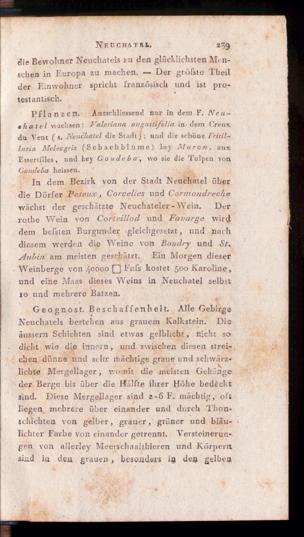 NEUCHATEL. 239
die Bewohner Neuchatels zu den glücklichsten Men-
schen in Europa zu machen. — Der größte Theil
der Einwohner spricht französisch und ist pro-
testantisch.
Pflanzen. Ausschliessend nur in dem F. Neu-
chatel wachsen: Valeriana angustifolia in dem Creux
du Vent (s. Neuchatel die Stadt); und die schöne Fritil-
laria Meleagris (Schachblume) bey Moron, aux
Essertilles, und bey Goudeba, wo sie die Tulpen von
Goudeba heissen.
In dem Bezirk von der Stadt Neuchatel über
die Dörfer Peseux, Corcelles und Cormondreche
wächst der geschätzte Neuchateler-Wein. Der
rothe Wein von Corteillod und Favarge wird
dem besten Burgunder gleichgesetzt, und nach
diesem werden die Weine von Boudry und St.
Aubin am meisten geschätzt. Ein Morgen dieser
Weinberge von 40000 □ Fuss kostet 500 Karoline,
und eine Maas dieses Weins in Neuchatel selbst
10 und mehrere Batzen.
Geognost. Beschaffenheit. Alle Gebirge
Neuchatels bestehen aus grauem Kalkstein. Die
äussern Schichten sind etwas gelblicht, nicht so
dicht wie die innern, und zwischen diesen strei-
chen dünne und sehr mächtige graue und schwärz-
lichte Mergellager, womit die meisten Gehänge
der Berge bis über die Hälfte ihrer Höhe bedeckt
sind. Diese Mergellager sind 2-6 F. mächtig, oft
liegen mehrere über einander und durch Thon-
schichten von gelber, grauer, grüner und bläu-
lichter Farbe von einander getrennt. Versteinerun-
gen von allerley Meerschaalthieren und Körpern
sind in den grauen, besonders in den gelben